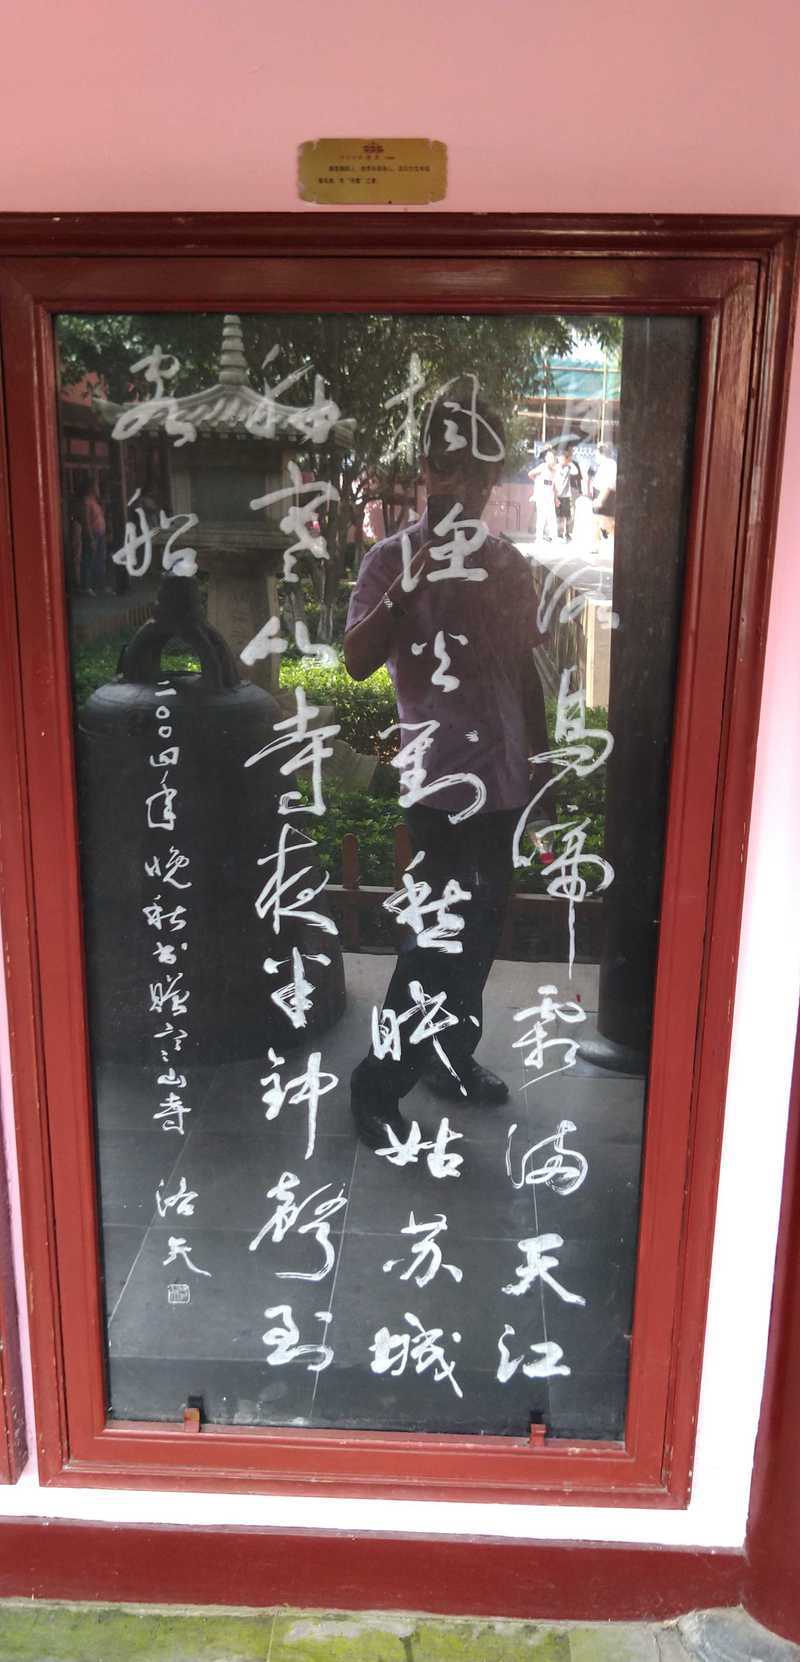 月落烏啼霜满天江
楓渔火對愁眠姑苏城
外寒山寺夜半钟聲到
客船
二〇〇四年晚秋书赠寒山寺 洛夫